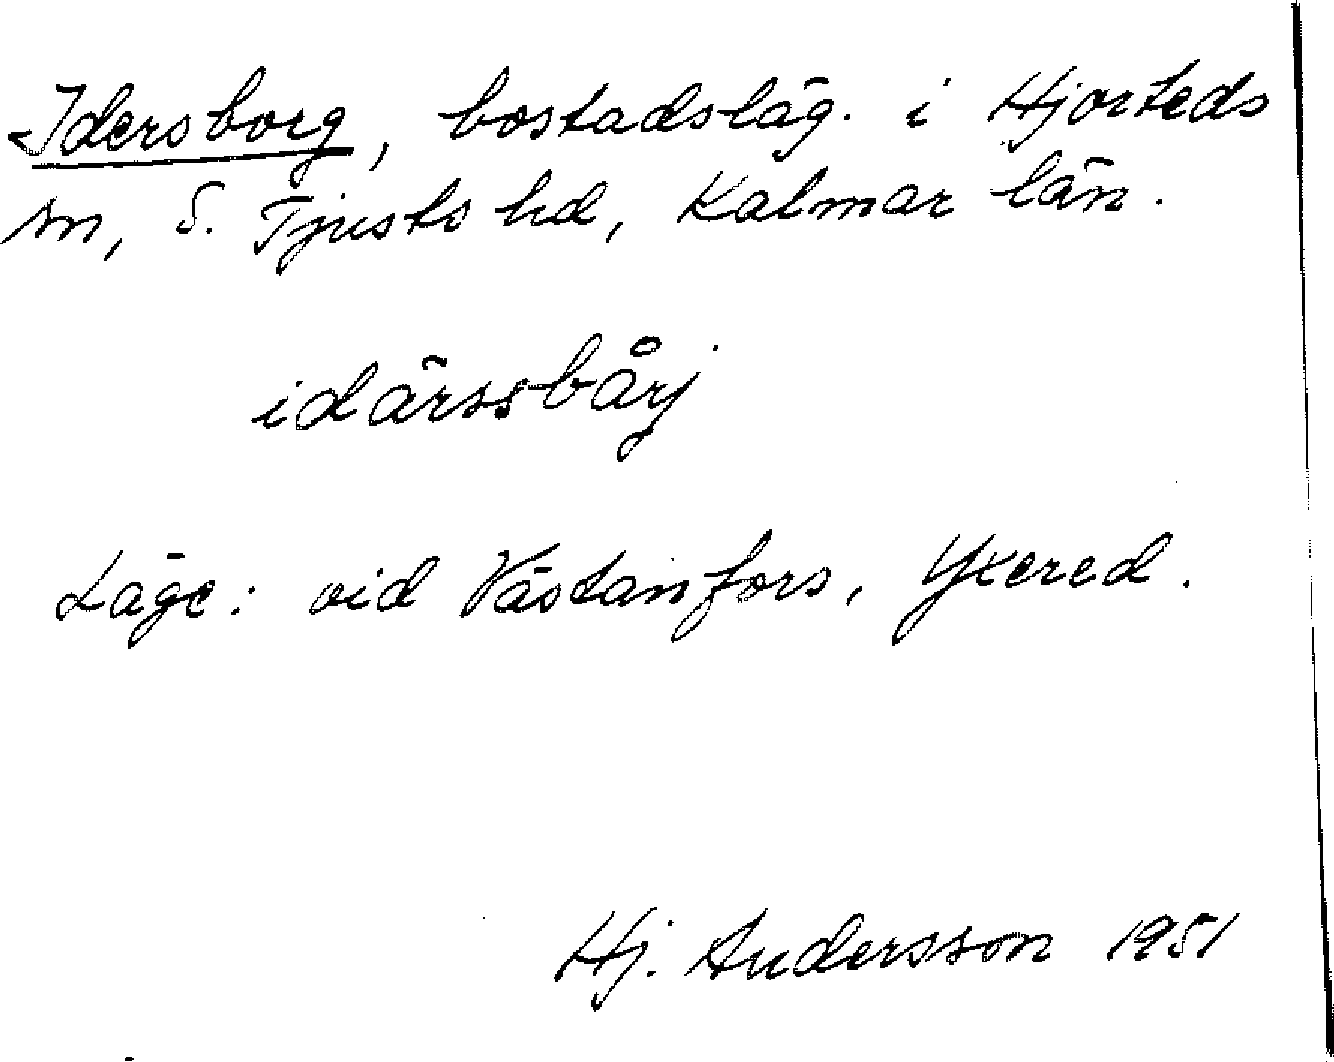 Idersborg, bostadsläg. i Hjorteds
sn, S. Tjusts hd, Kalmar län.
idärssbårj
Läge: vid Västanfors, Yxered.
Hj. Andersson 1951